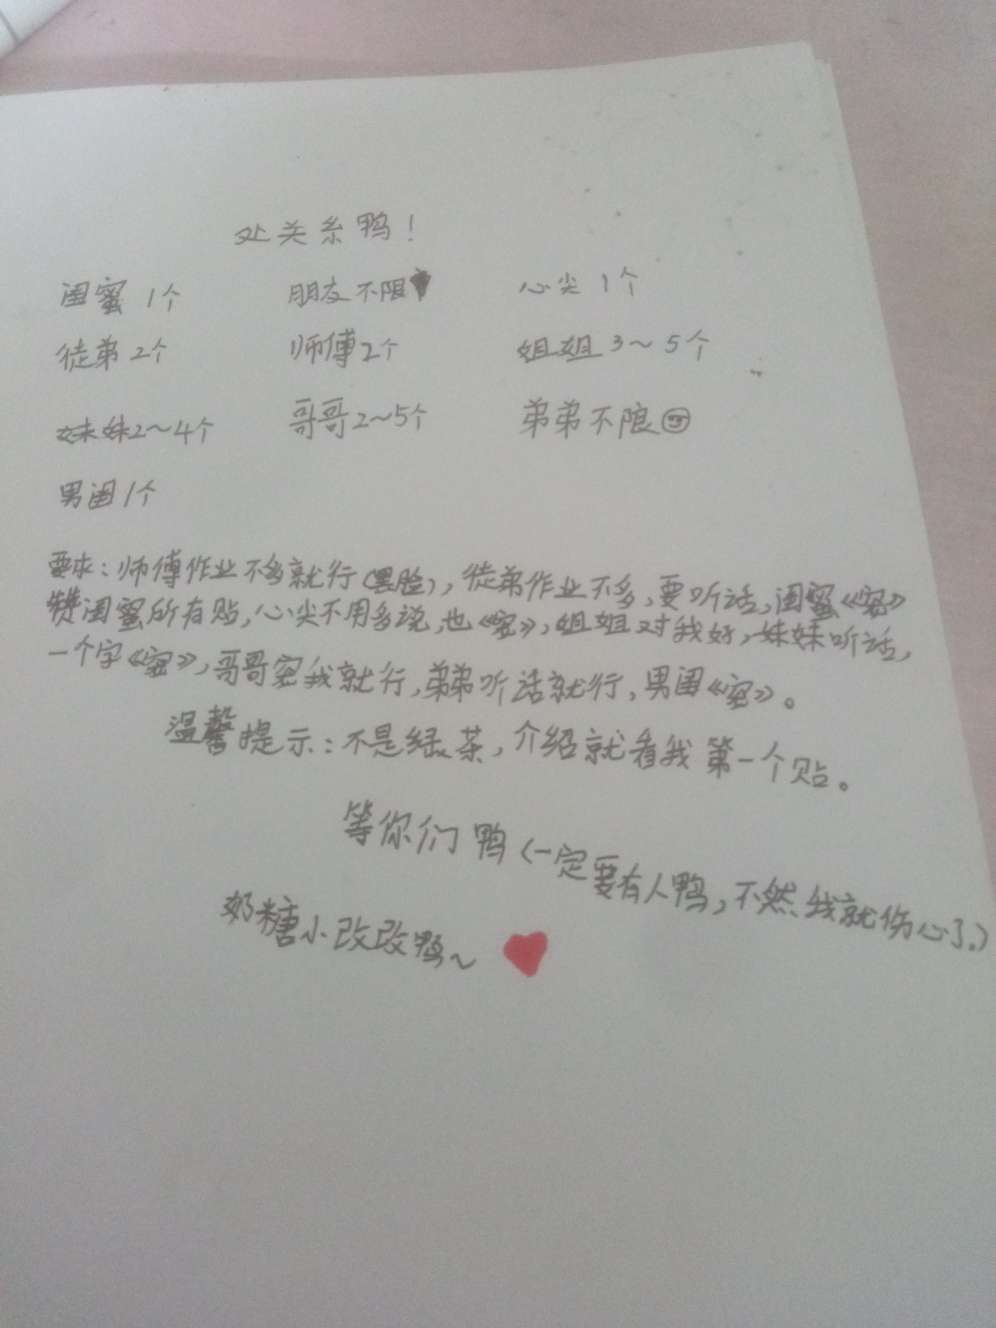 处关系鸭！
闺蜜1个 朋友不限 心尖1个
徒弟2个 师傅2个 姐姐3～5个
妹妹2～4个 哥哥2～5个 弟弟不限
男闺1个
要求：师傅作业不多就行(黑脸)，徒弟作业不多，要听话，闺蜜《宠》
赞闺蜜所有贴，心尖不用多说，也《宠》，姐姐对我好，妹妹听话，
一个字《宠》，哥哥宠我就行，弟弟听话就行，男闺《宠》。
温馨提示：不是绿茶，介绍就看我第一个贴。
等你们鸭(一定要有人鸭，不然我就伤心了。)
奶糖小改改鸭～